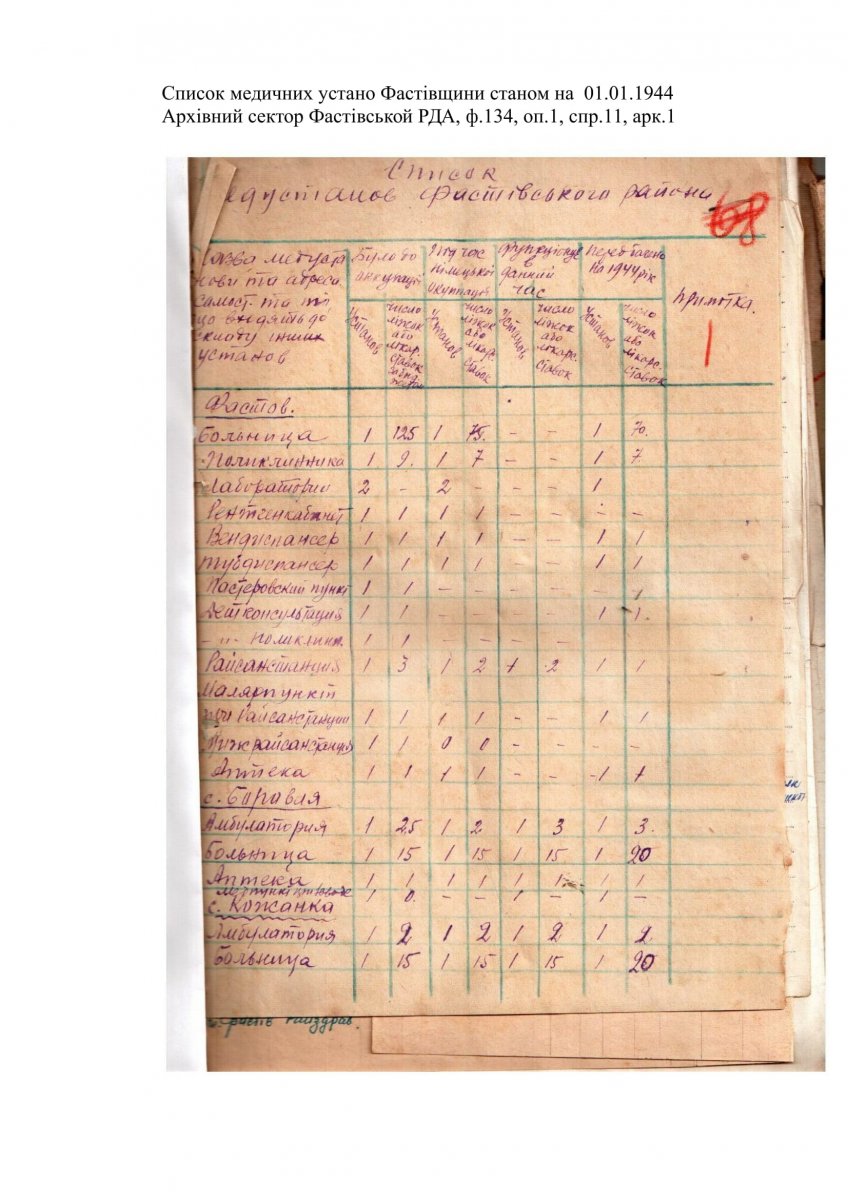 Список медичних устано Фастівщини станом на 01.01.1944
Архівний сектор Фастівської РДА, ф.134, оп.1, спр.11, арк.1
Список
едустанов Фастівського района
68
Було до окупації
Під час німецької окупації
Функціонує в данний час
Передбачено на 1944 рік
Примітка.
1
Установ
число ліжок або лікар. ставок
Установ
число ліжок або лікар. ставок
Установ
число ліжок або лікарс. ставок
Установ
число ліжок або лікарс. ставок
Назва медуста
нови та адреса
самост. та ті
що входять до
складу інших
установ
Фастов.
Больница 1 125 1 75. – – 1 70.
Поликлинника 1 9. 1 7 – – 1 7
Лаборатории 2 - 2 – – – 1
Рентгенкабинет 1 1 1 1 – – – –
Вендиспансер 1 1 1 1 – – 1 1
Тубдиспансер 1 1 1 1 – – 1 1
Пастеровский пункт 1 1 – – – – –
Детконсультация 1 1 – – – – 1 1.
– „ – поликлин. 1 1 – – – –
Райсанстанция 1 3 1 2 1 2 1 1
Малярпункт
при Райсанстанции 1 1 1 1 – – 1 1
Межрайсанстанция 1 1 0 0 – – – –
Аптека 1 1 1 1 – – 1 1
с. Боравля
Амбулатория 1 25 1 2 1 3 1 3.
Больница 1 15 1 15 1 15 1 20
Аптека 1 1 1 1 1 1 1 1
1 0. – – 1 – 1 –
с. Кожанка
Амбулатория 1 2 1 2 1 2 1 2
Больница 1 15 1 15 1 15 1 20
райздрав.